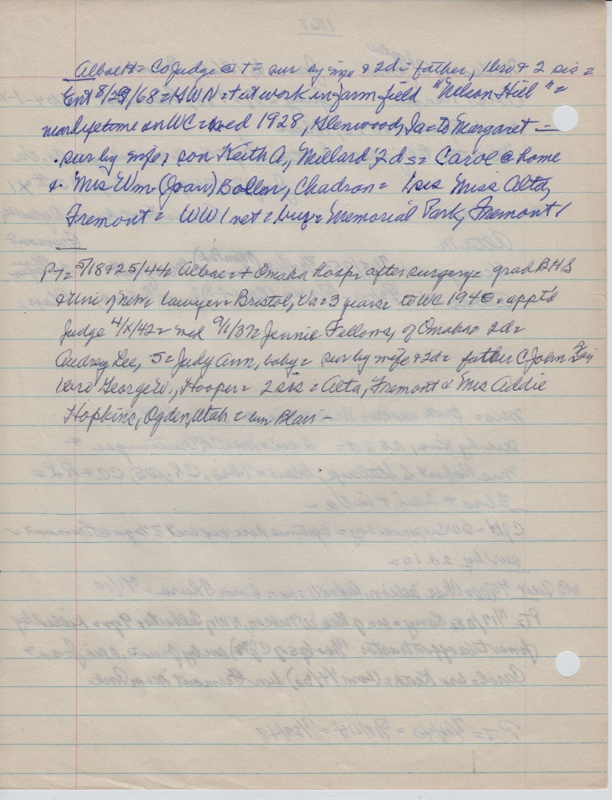 Albert = Co Judge @ T = sur by wife & 2d = father, 1 bro & 2 sis =
Ent 8/29/68 = HWN = + at work in farm field "Nelson Hill" =
near lifetime on WC = wed 1928, Glenwood, Ia = to Margaret —
. sur by wife, son Keith A, Millard 7 ds = Carol @ home
& Mrs Wm (Joan) Boller, Chadron = 1 sis Miss Alta,
Fremont = WW1 vet = bury = Memorial Park, Fremont
PT = 5/18 & 25/44, Albae + Omaha hosp after surgery = grad BHS
& Uni of = lawyer = Bristol, Va = 3 years = to WC 1940 = apptd
Judge 4/ /42 = wed 9/1/37 = Jennie Fellows, of Omaha = 2d =
Audrey Lee, 5 = Judy Ann, baby = sur by wife & 2d = father C John
bro George W, Hooper = 2 sis = Alta, Fremont & Mrs Addie
Hopkins, Ogden, Utah = Blair —